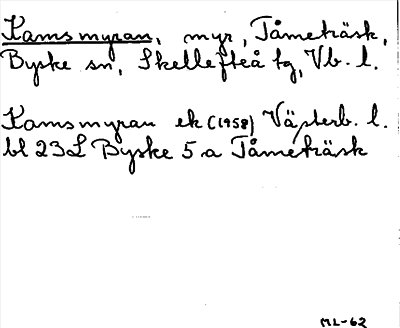 Kamsmyran, myr, Tåmeträsk,
Byske sn, Skellefteå tg, Vb. l.
Kamsmyran ek (1958) Västerb. l.
bl 23L Byske 5 a Tåmeträsk
ML-62